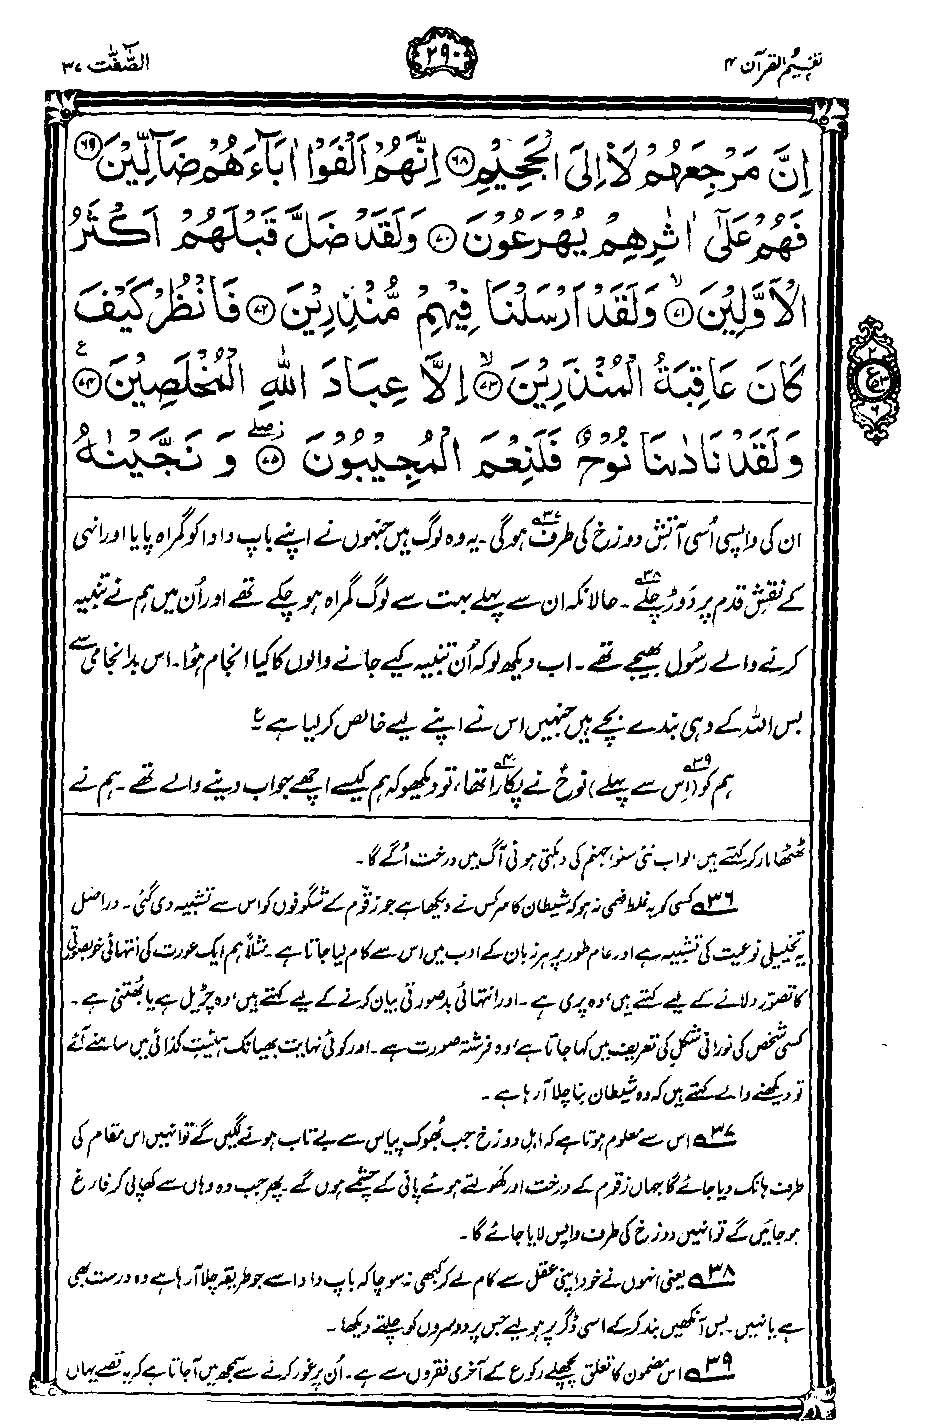 تفہیم القرآن ۴
۲۹۰
الصّٰفّٰت ۳۷
اِنَّ مَرْجِعَهُمْ لَاْاِلَى الْجَحِيْمِ ﴿۶۸﴾ اِنَّهُمْ اَلْفَوْا اٰبَآءَهُمْ ضَآلِّيْنَ ﴿۶۹﴾
فَهُمْ عَلٰٓى اٰثٰرِهِمْ يُهْرَعُوْنَ ﴿۷۰﴾ وَلَقَدْ ضَلَّ قَبْلَهُمْ اَكْثَرُ
الْاَوَّلِيْنَ ﴿۷۱﴾ وَلَقَدْ اَرْسَلْنَا فِيْهِمْ مُّنْذِرِيْنَ ﴿۷۲﴾ فَانْظُرْ كَيْفَ
كَانَ عَاقِبَةُ الْمُنْذَرِيْنَ ﴿۷۳﴾ اِلَّا عِبَادَ اللّٰهِ الْمُخْلَصِيْنَ ﴿۷۴﴾ ع
وَلَقَدْ نَادٰىنَا نُوْحٌ فَلَنِعْمَ الْمُجِيْبُوْنَ ﴿۷۵﴾ وَنَجَّيْنٰهُ
ان کی واپسی اُسی آتشِ دوزخ کی طرف ہوگی۳۷۔ یہ وہ لوگ ہیں جنہوں نے اپنے باپ دادا کو گمراہ پایا اور انہی
کے نقشِ قدم پر دَوڑ چلے۳۸۔ حالانکہ ان سے پہلے بہت سے لوگ گمراہ ہو چکے تھے اور اُن میں ہم نے تنبیہ
کرنے والے رسُول بھیجے تھے۔ اب دیکھ لو کہ اُن تنبیہ کیے جانے والوں کا کیا انجام ہوٴا۔ اس بد انجامی سے
بس اللہ کے وہی بندے بچے ہیں جنہیں اس نے اپنے لیے خالص کر لیا ہے ع
ہم کو۳۹ (اِس سے پہلے) نوحؑ نے پکارا۴۰ تھا، تو دیکھو کہ ہم کیسے اچھے جواب دینے والے تھے۔ ہم نے
ٹھٹھا مار کر کہتے ہیں، لو اب نئی سنو، جہنم کی دہکتی ہوئی آگ میں درخت اُگے گا۔
۳۶؎ کسی کو یہ غلط فہمی نہ ہو کہ شیطان کا سر کس نے دیکھا ہے جو زقّوم کے شگوفوں کو اس سے تشبیہ دی گئی۔ دراصل
یہ تخییلی نوعیت کی تشبیہ ہے اور عام طور پر ہر زبان کے ادب میں اس سے کام لیا جاتا ہے۔ مثلاً ہم ایک عورت کی انتہائی خوبصورتی
کا تصوّر دلانے کے لیے کہتے ہیں، وہ پری ہے۔ اور انتہائی بدصورتی بیان کرنے کے لیے کہتے ہیں، وہ چڑیل ہے یا بھُتنی ہے۔
کسی شخص کی نورانی شکل کی تعریف میں کہا جاتا ہے، وہ فرشتہ صورت ہے۔ اور کوئی نہایت بھیانک ہیئتِ کذائی میں سامنے آئے
تو دیکھنے والے کہتے ہیں کہ وہ شیطان بنا چلا آ رہا ہے۔
۳۷؎ اس سے معلوم ہوتا ہے کہ اہلِ دوزخ جب بھُوک پیاس سے بے تاب ہونے لگیں گے تو انہیں اس مقام کی
طرف ہانک دیا جائے گا جہاں زقوم کے درخت اور کھولتے ہوئے پانی کے چشمے ہوں گے۔ پھر جب وہ وہاں سے کھا پی کر فارغ
ہو جائیں گے تو انہیں دوزخ کی طرف واپس لایا جائے گا۔
۳۸؎ یعنی انہوں نے خود اپنی عقل سے کام لے کر کبھی نہ سوچا کہ باپ دادا سے جو طریقہ چلا آ رہا ہے وہ درست بھی
ہے یا نہیں۔ بس آنکھیں بند کر کے اسی ڈگر پر ہو لیے جس پر دوسروں کو چلتے دیکھا۔
۳۹؎ اس مضمون کا تعلق پچھلے رکوع کے آخری فقروں سے ہے۔ اُن پر غور کرنے سے سمجھ میں آ جاتا ہے کہ یہ قصے یہاں
۲
ع
۶